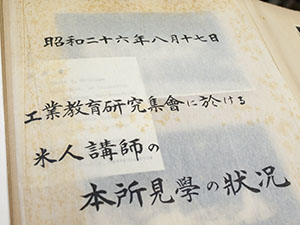 昭和二十六年八月十七日
工業教育研究集會に於ける
米人講師の
本所見學の狀況